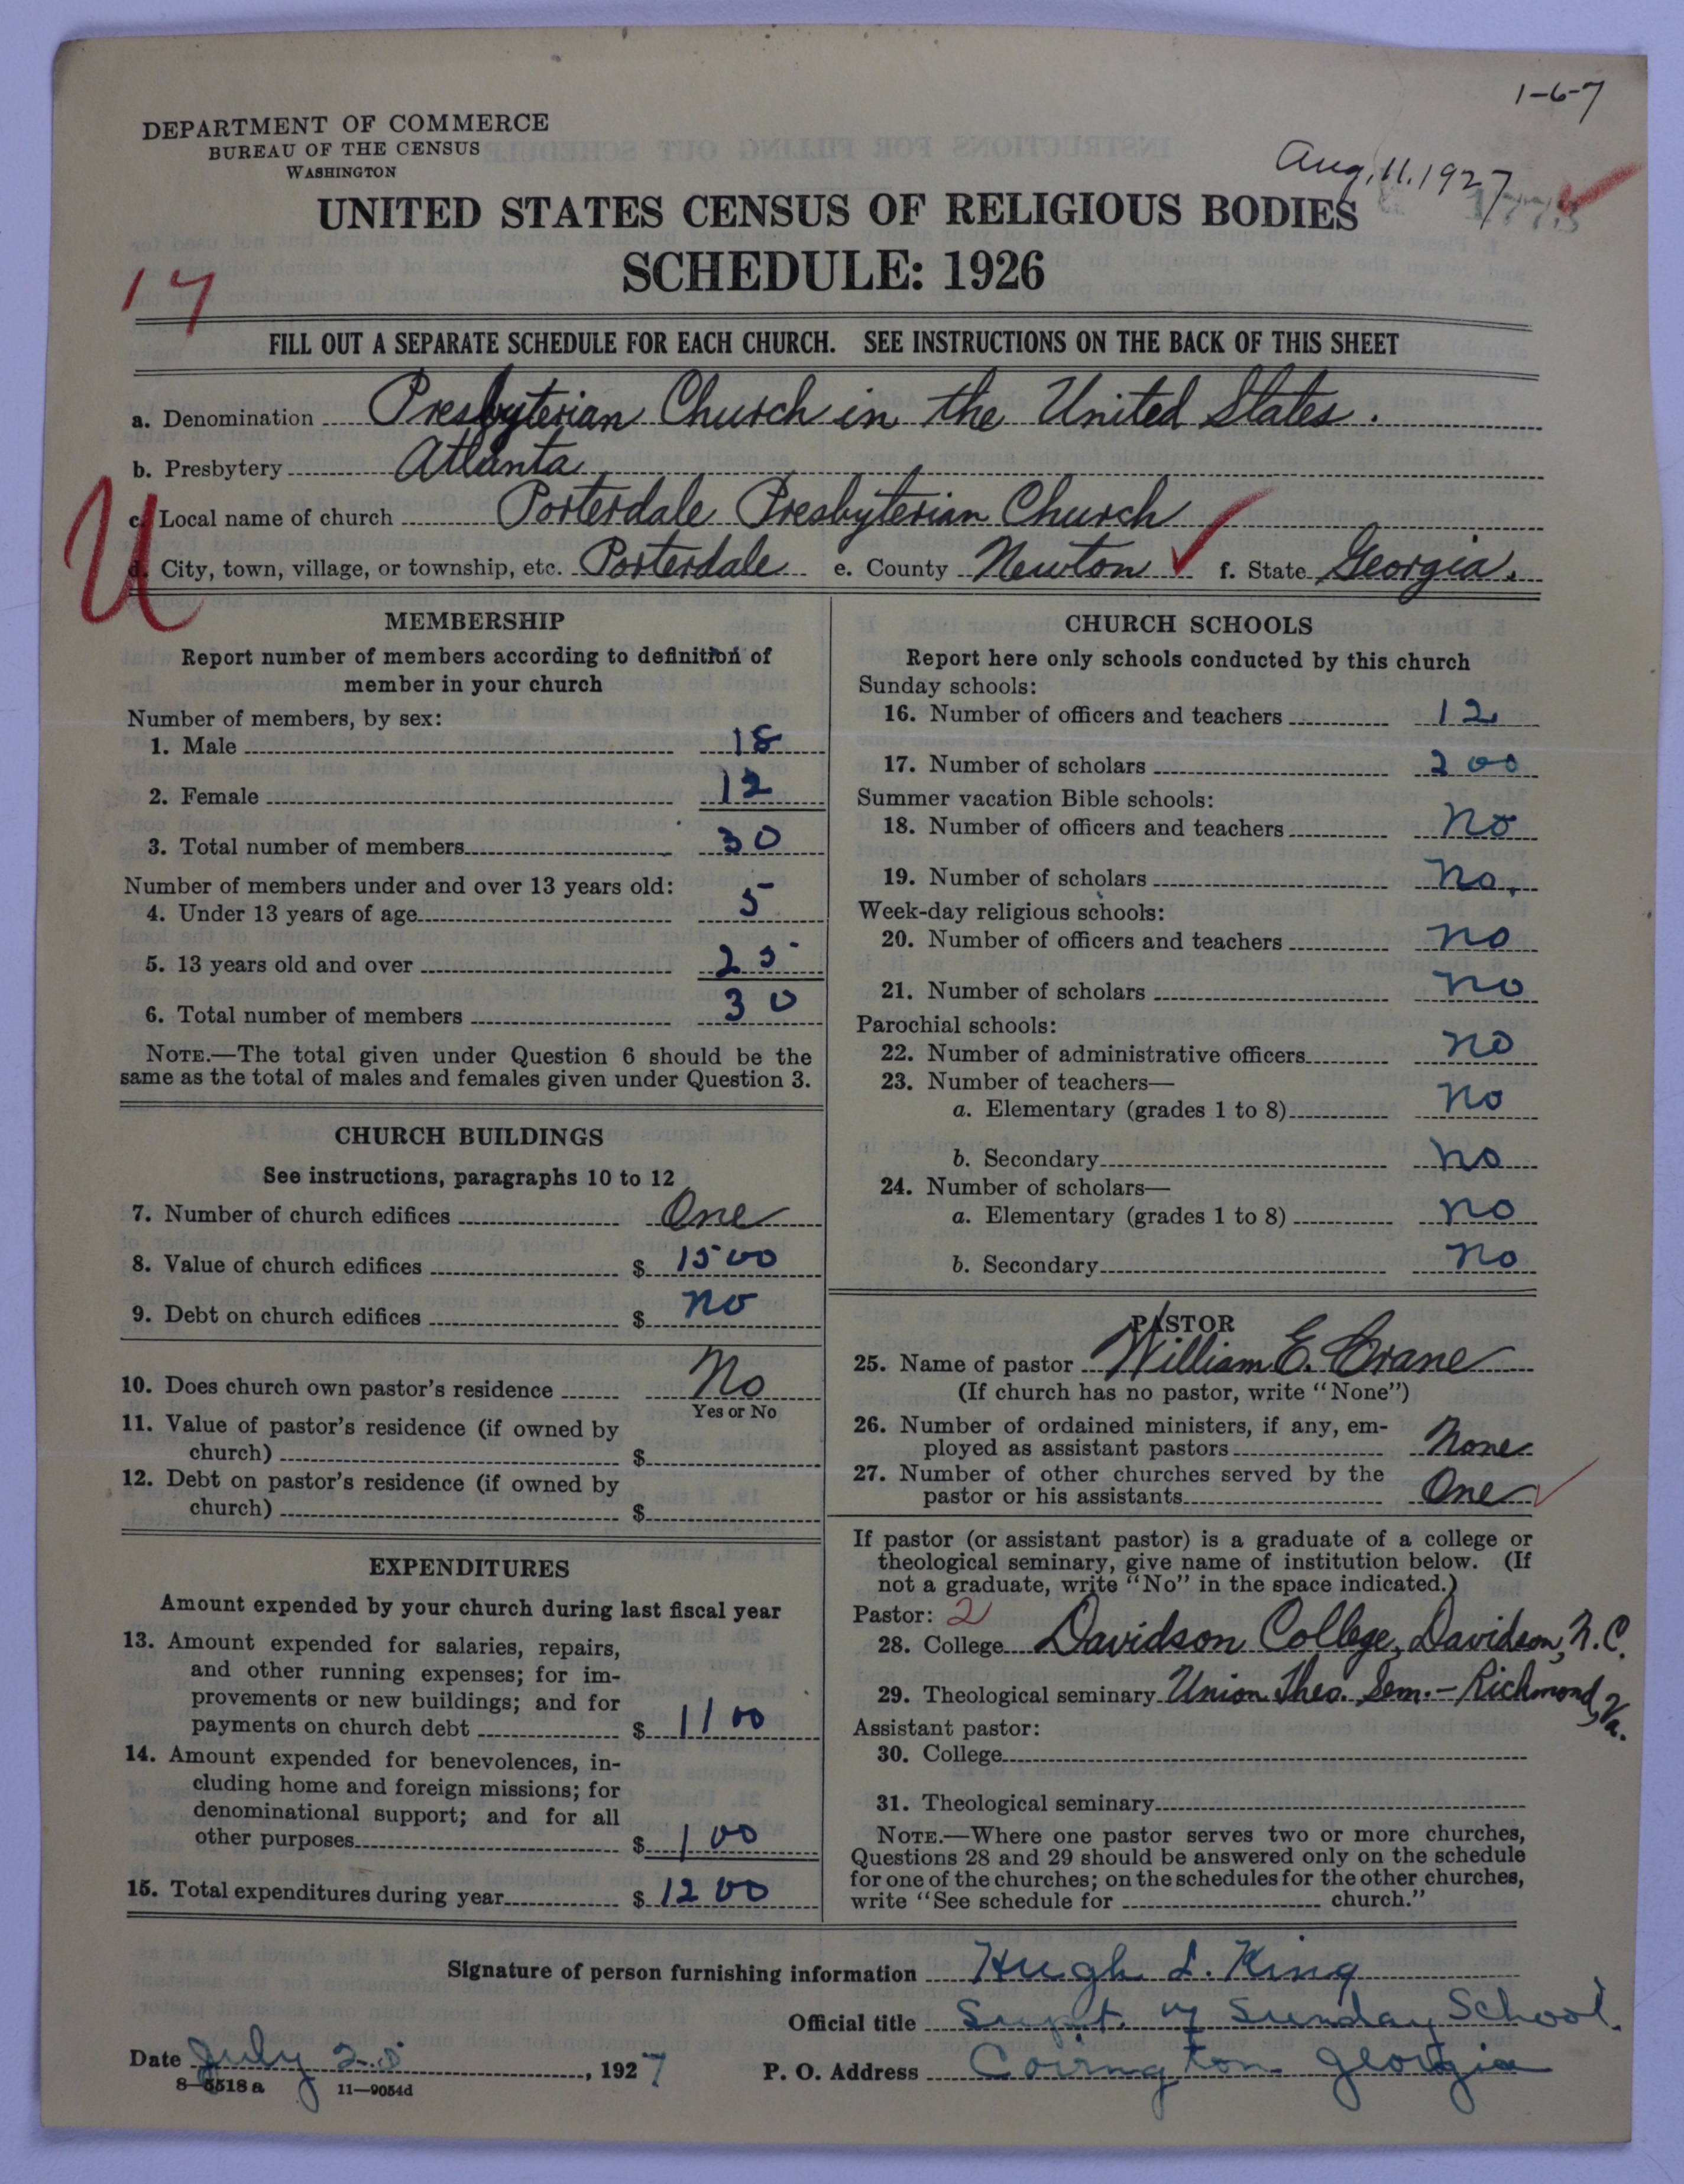 1-6-7
DEPARTMENT OF COMMERCE
BUREAU OF THE CENSUS
WASHINGTON
Aug, 11, 1927
UNITED STATES CENSUS OF RELIGIOUS BODIES
SCHEDULE: 1926
17
FILL OUT A SEPARATE SCHEDULE FOR EACH CHURCH. SEE INSTRUCTIONS ON THE BACK OF THIS SHEET
a. Denomination Presbyterian Church in the United States.
b. Presbytery Atlanta
U
c. Local name of church Porterdale Presbyterian Church
d. City, town, village, or township, etc. Porterdale e. County Newton f. State Georgia.
MEMBERSHIP
Report number of members according to definition of
member in your church
Number of members, by sex:
1. Male 18
2. Female 12
3. Total number of members 30
Number of members under and over 13 years old:
4. Under 13 years of age 5
5. 13 years old and over 25
6. Total number of members 30
NOTE.—The total given under Question 6 should be the
same as the total of males and females given under Question 3.
CHURCH BUILDINGS
See instructions, paragraphs 10 to 12
7. Number of church edifices One
8. Value of church edifices $ 1500
9. Debt on church edifices $ no
10. Does church own pastor's residence No
Yes or No
11. Value of pastor's residence (if owned by
church) $
12. Debt on pastor's residence (if owned by
church) $
EXPENDITURES
Amount expended by your church during last fiscal year
13. Amount expended for salaries, repairs,
and other running expenses; for im-
provements or new buildings; and for
payments on church debt $ 1100
14. Amount expended for benevolences, in-
cluding home and foreign missions; for
denominational support; and for all
other purposes $ 100
15. Total expenditures during year $ 1200
CHURCH SCHOOLS
Report here only schools conducted by this church
Sunday schools:
16. Number of officers and teachers 12
17. Number of scholars 200
Summer vacation Bible schools:
18. Number of officers and teachers no
19. Number of scholars no.
Week-day religious schools:
20. Number of officers and teachers no
21. Number of scholars no
Parochial schools:
22. Number of administrative officers no
23. Number of teachers—
a. Elementary (grades 1 to 8) no
b. Secondary no
24. Number of scholars—
a. Elementary (grades 1 to 8) no
b. Secondary no
PASTOR
25. Name of pastor William E. Crane
(If church has no pastor, write "None")
26. Number of ordained ministers, if any, em-
ployed as assistant pastors None
27. Number of other churches served by the
pastor or his assistants One
If pastor (or assistant pastor) is a graduate of a college or
theological seminary, give name of institution below. (If
not a graduate, write "No" in the space indicated.)
Pastor: 2
28. College Davidson College, Davidson, N.C.
29. Theological seminary Union Theo. Sem. - Richmond, Va.
Assistant pastor:
30. College
31. Theological seminary
NOTE.—Where one pastor serves two or more churches,
Questions 28 and 29 should be answered only on the schedule
for one of the churches; on the schedules for the other churches,
write "See schedule for church."
Signature of person furnishing information Hugh L. King
Official title Supt. of Sunday School.
Date July 25, 1927 P. O. Address Covington Georgia
8—5518 a 11—9054d